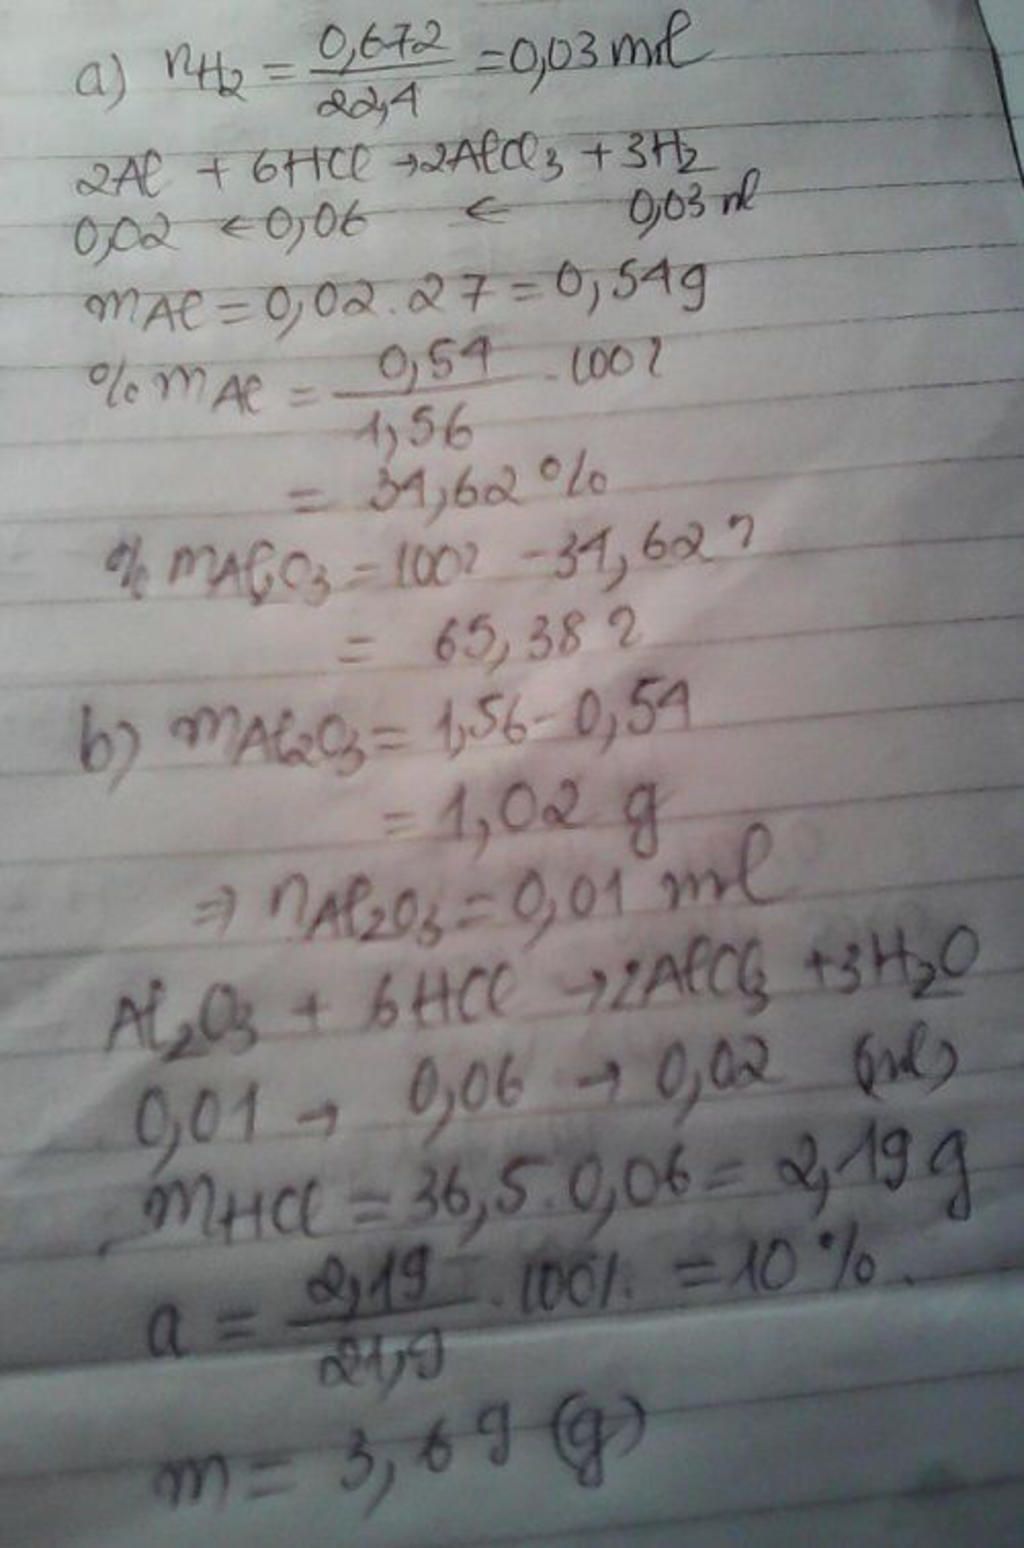 a) nH2 = 0,672 / 22,4 = 0,03 mol
2Al + 6HCl → 2AlCl3 + 3H2
0,02 ← 0,06 ← 0,03 mol
mAl = 0,02 . 27 = 0,54g
% mAl = 0,54 / 1,56 . 100%
= 34,62 %
% mAl2O3 = 100% - 34,62 %
= 65,38 %
b) mAl2O3 = 1,56 - 0,54
= 1,02 g
⇒ nAl2O3 = 0,01 mol
Al2O3 + 6HCl → 2AlCl3 + 3H2O
0,01 → 0,06 → 0,02 (mol)
mHCl = 36,5 . 0,06 = 2,19 g
a = 2,19 / 21,9 . 100% = 10 %.
m = 3,69 (g)